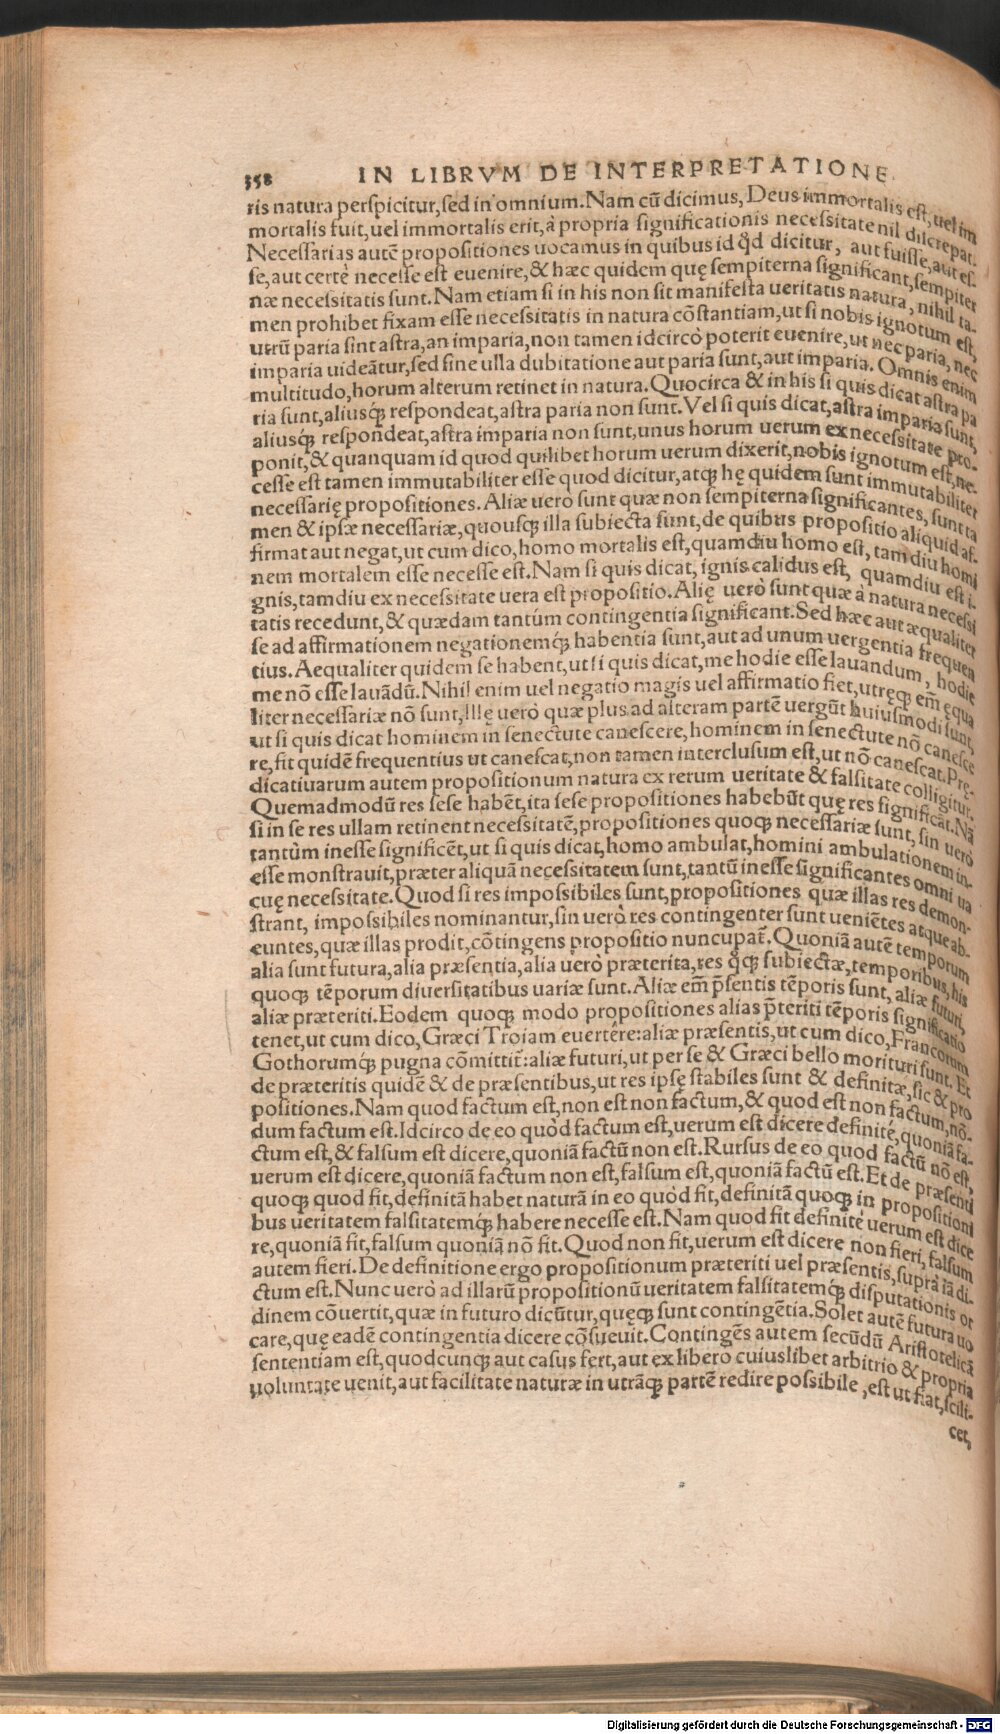 358 IN LIBRVM DE INTERPRETATIONE
ris natura perspicitur, sed in omnium. Nam cū dicimus, Deus immortalis est, uel im
mortalis fuit, uel immortalis erit, à propria significationis necessitate nil discrepat.
Necessarias autē propositiones uocamus in quibus id qđ dicitur, aut fuisse, aut es-
se, aut certè necesse est euenire, & hæc quidem quę sempiterna significant, sempiter
næ necessitatis sunt. Nam etiam si in his non sit manifesta ueritatis natura, nihil ta-
men prohibet fixam esse necessitatis in natura cōstantiam, ut si nobis ignotum est,
utrū paria sint astra, an imparia, non tamen idcircò poterit euenire, ut nec paria, nec
imparia uideātur, sed sine ulla dubitatione aut paria sunt, aut imparia. Omnis enim
multitudo, horum alterum retinet in natura. Quocirca & in his si quis dicat astra pa
ria sunt, aliusq́; respondeat, astra paria non sunt. Vel si quis dicat, astra imparia sunt,
aliusq́; respondeat, astra imparia non sunt, unus horum uerum ex necessitate pro-
ponit, & quanquam id quod quilibet horum uerum dixerit, nobis ignotum est, ne-
cesse est tamen immutabiliter esse quod dicitur, atq; hę quidem sunt immutabiliter
necessarię propositiones. Aliæ uerò sunt quæ non sempiterna significantes, sunt ta
men & ipsæ necessariæ, quousq; illa subiecta sunt, de quibus propositio aliquid af-
firmat aut negat, ut cum dico, homo mortalis est, quamdiu homo est, tam diu homi
nem mortalem esse necesse est. Nam si quis dicat, ignis calidus est, quamdiu est i-
gnis, tamdiu ex necessitate uera est propositio. Alię uerò sunt quæ à natura necessi
tatis recedunt, & quædam tantúm contingentia significant. Sed hæc aut æqualiter
se ad affirmationem negationemq́; habentia sunt, aut ad unum uergentia frequen
tius. Aequaliter quidem se habent, ut si quis dicat, me hodie esse lauandum, hodie
me nō esse lauādū. Nihil enim uel negatio magis uel affirmatio fiet, utręq; em̄ ęqua
liter necessariæ nō sunt, Illę uerò quæ plus ad alteram partē uergūt huiusmodi sunt,
ut si quis dicat hominem in senectute canescere, hominem in senectute nō canesce
re, fit quidē frequentius ut canescat, non tamen interclusum est, ut nō canescat. Prę-
dicatiuarum autem propositionum natura ex rerum ueritate & falsitate colligitur.
Quemadmodū res sese habēt, ita sese propositiones habebūt quę res significāt. Nā
si in se res ullam retinent necessitatē, propositiones quoq; necessariæ sunt, sin uerò
tantùm inesse significēt, ut si quis dicat, homo ambulat, homini ambulationem in-
esse monstrauit, præter aliquā necessitatem sunt, tantū inesse significantes omni ua
cuę necessitate. Quod si res impossibiles sunt, propositiones quæ illas res demon-
strant, impossibiles nominantur, sin uerò res contingenter sunt ueniētes atque ab-
euntes, quæ illas prodit, cōtingens propositio nuncupat̄. Quoniā autē temporum
alia sunt futura, alia præsentia, alia uerò præterita, res q́; subiectæ, temporibus, his
quoq; tēporum diuersitatibus uariæ sunt. Aliæ em̄ p̄sentis tēporis sunt, aliæ futuri,
aliæ præteriti. Eodem quoq; modo propositiones alias p̄teriti tēporis significatio
tenet, ut cum dico, Græci Troiam euertêre: aliæ præsentis, ut cum dico, Francorum
Gothorumq́; pugna cōmittit̄: aliæ futuri, ut per se & Græci bello morituri sunt. Et
de præteritis quidē & de præsentibus, ut res ipsę stabiles sunt & definitæ, sic & pro
positiones. Nam quod factum est, non est non factum, & quod est non factum, nō-
dum factum est. Idcirco de eo quòd factum est, uerum est dicere definitè, quoniā fa-
ctum est, & falsum est dicere, quoniā factū non est. Rursus de eo quod factū nō est,
uerum est dicere, quoniā factum non est, falsum est, quoniā factū est. Et de præsenti
quoq; quod fit, definitā habet naturā in eo quòd fit, definitā quoq; in propositioni
bus ueritatem falsitatemq́; habere necesse est. Nam quod fit definitè uerum est dice
re, quoniā fit, falsum quoniā nō fit. Quod non fit, uerum est dicere non fieri, falsum
autem fieri. De definitione ergo propositionum præteriti uel præsentis, suprà iā di-
ctum est. Nunc uerò ad illarū propositionū ueritatem falsitatemq́; disputationis or
dinem cōuertit, quæ in futuro dicūtur, quęq; sunt contingētia. Solet autē futura uo
care, quę eadē contingentia dicere cōsueuit. Contingēs autem secūdū Aristotelicā
sententiam est, quodcunq; aut casus fert, aut ex libero cuiuslibet arbitrio & propria
uoluntate uenit, aut facilitate naturæ in utrāq; partē redire possibile, est ut fiat, scili-
cet,
Digitalisierung gefördert durch die Deutsche Forschungsgemeinschaft - DFG